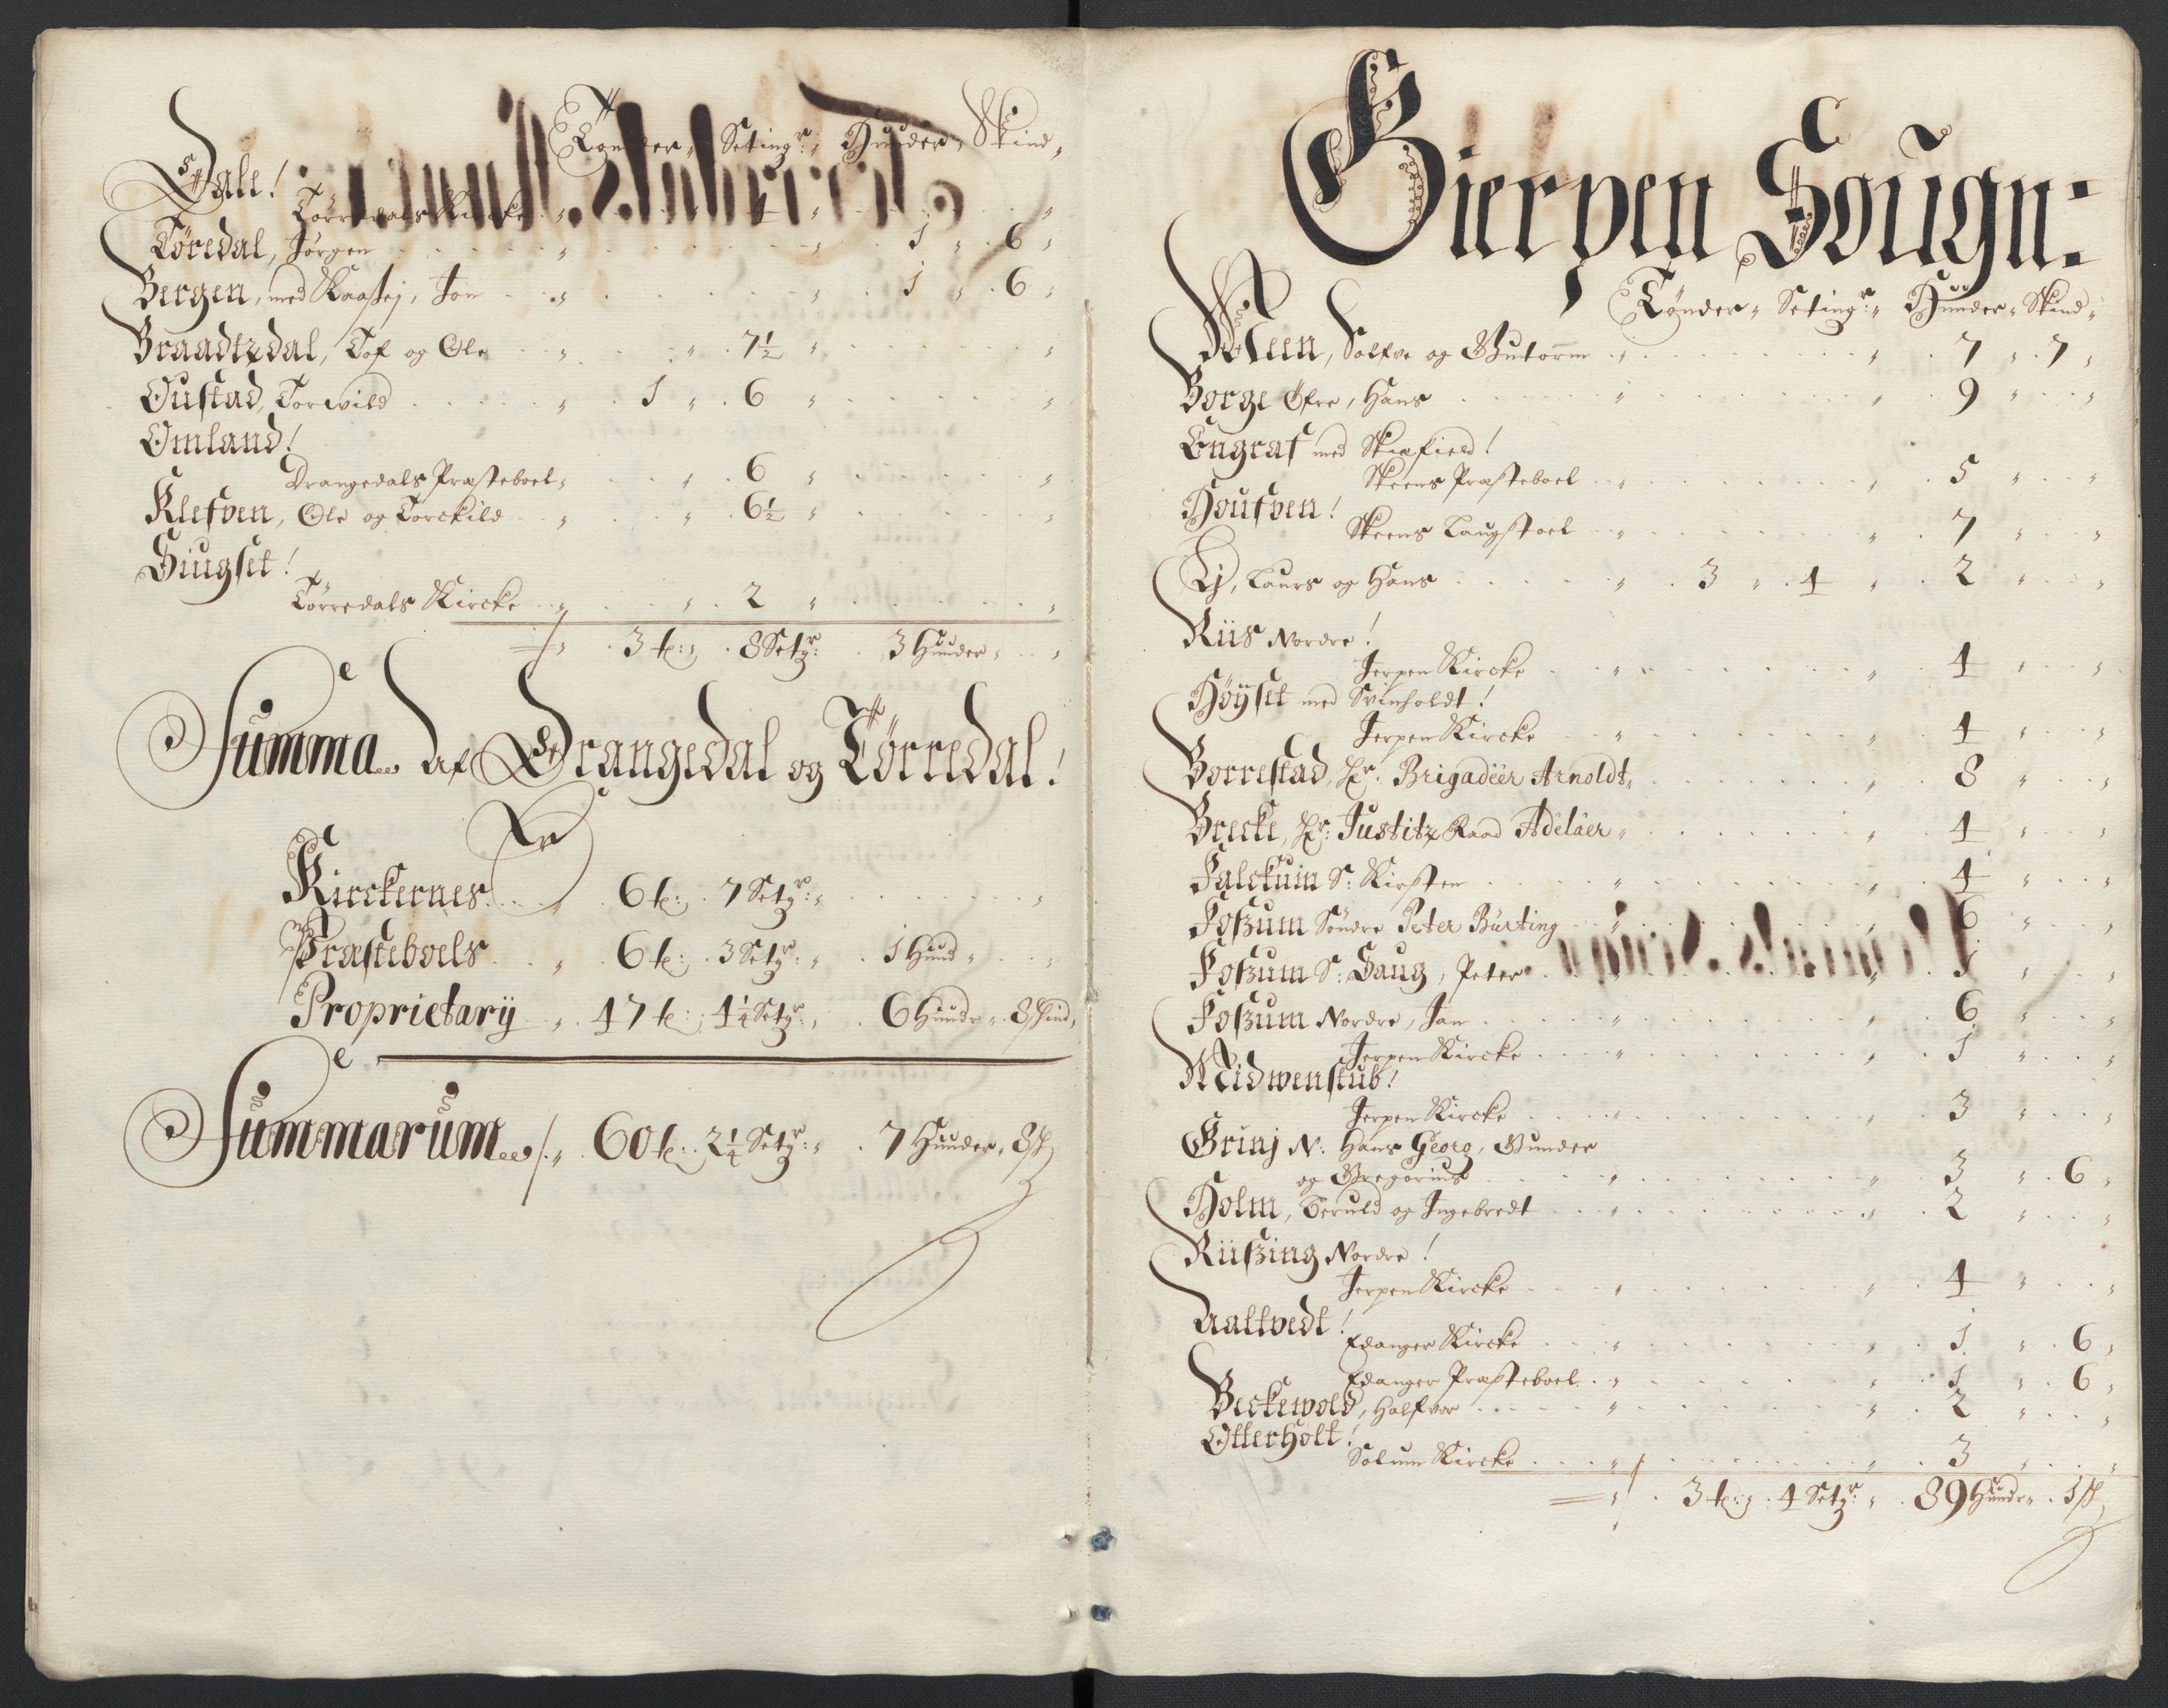 Tønder, Setingr: Hunder, Skind,
Dale!
Törredals Kircke 4
Töredal, Jörgen 1 6
Bergen, med Kaasej, Jon 1 6
Braadtzdal, Tof og Ole 7½
Oustad, Torwild 1 6
Omland!
Drangedals Præsteboel 6
Klefven, Ole og Torckild 6½
Siugset!
Törredals Kircke 2
3 t: 8 Setgr: 3 Hunder
Summa af Drangedal og Törredal!
Kirckernes 6 t: 7 Setgr:
Præsteboels 6 t: 3 Setgr: 1 Hund
Proprietarij 47 t: 4¼ Setgr: 6 Hundr 8 Skind,
Summarum 60 t: 2¼ Setgr: 7 Hunder, 8 sk
Gierpen Sougn:
Tønder, Setingr: Hunder, Skind,
Meen, Solfve og Gutorm 7 7
Borge Øfre, Hans 9
Engraf med Skiefield!
Skeens Præsteboel 5
Houfven!
Skeens Laugstoel 7
Lj, Laurs og Hans 3 4 2
Riis Nordre!
Jerpen Kircke 4
Höÿset med Svinholdt!
Jerpen Kircke 4
Borrestad, Hr: Brigadeer Arnoldt 8
Brecke, Hr: Justitz Raad Adelaer 4
Falckum S: Kirsten 4
Foszum Söndre Peter Bürting 6
Foszum S: Saug, Peter 1
Foszum Nordre, Jan 6
Jerpen Kircke 1
Midwenstub!
Jerpen Kircke 3
Grinj N: Hans Georg, Gunder
og Gregorius 3 6
Holm, Beruld og Ingebredt 2
Riiszing Nordre!
Jerpen Kircke 4
Aaltvedt!
Edanger Kircke 1 6
Edanger Præsteboel 1 6
Beckewold, Halfvor 2
Otterholt!
Solum Kircke 3
3 t: 4 Setgr: 89 Hundr 1 sk